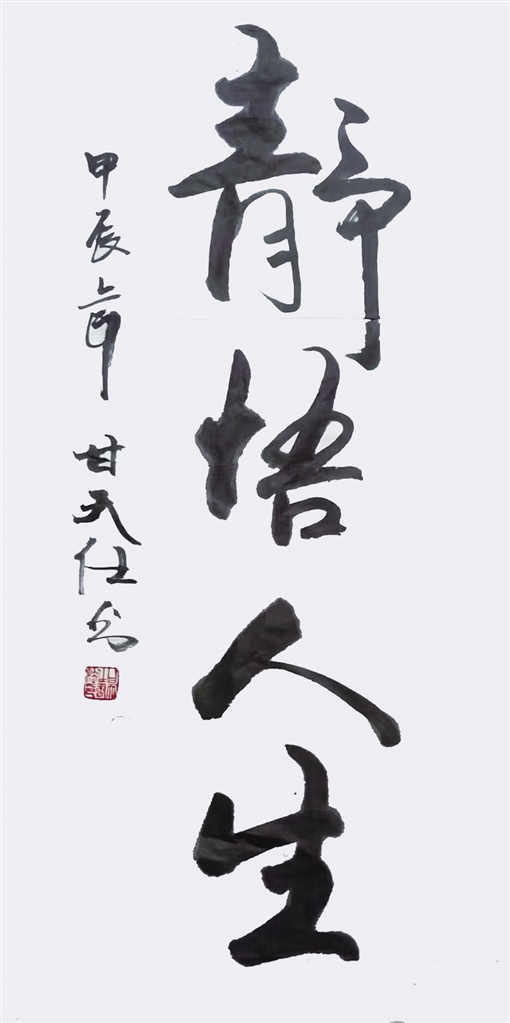 靜悟人生
甲辰年 甘天仕书